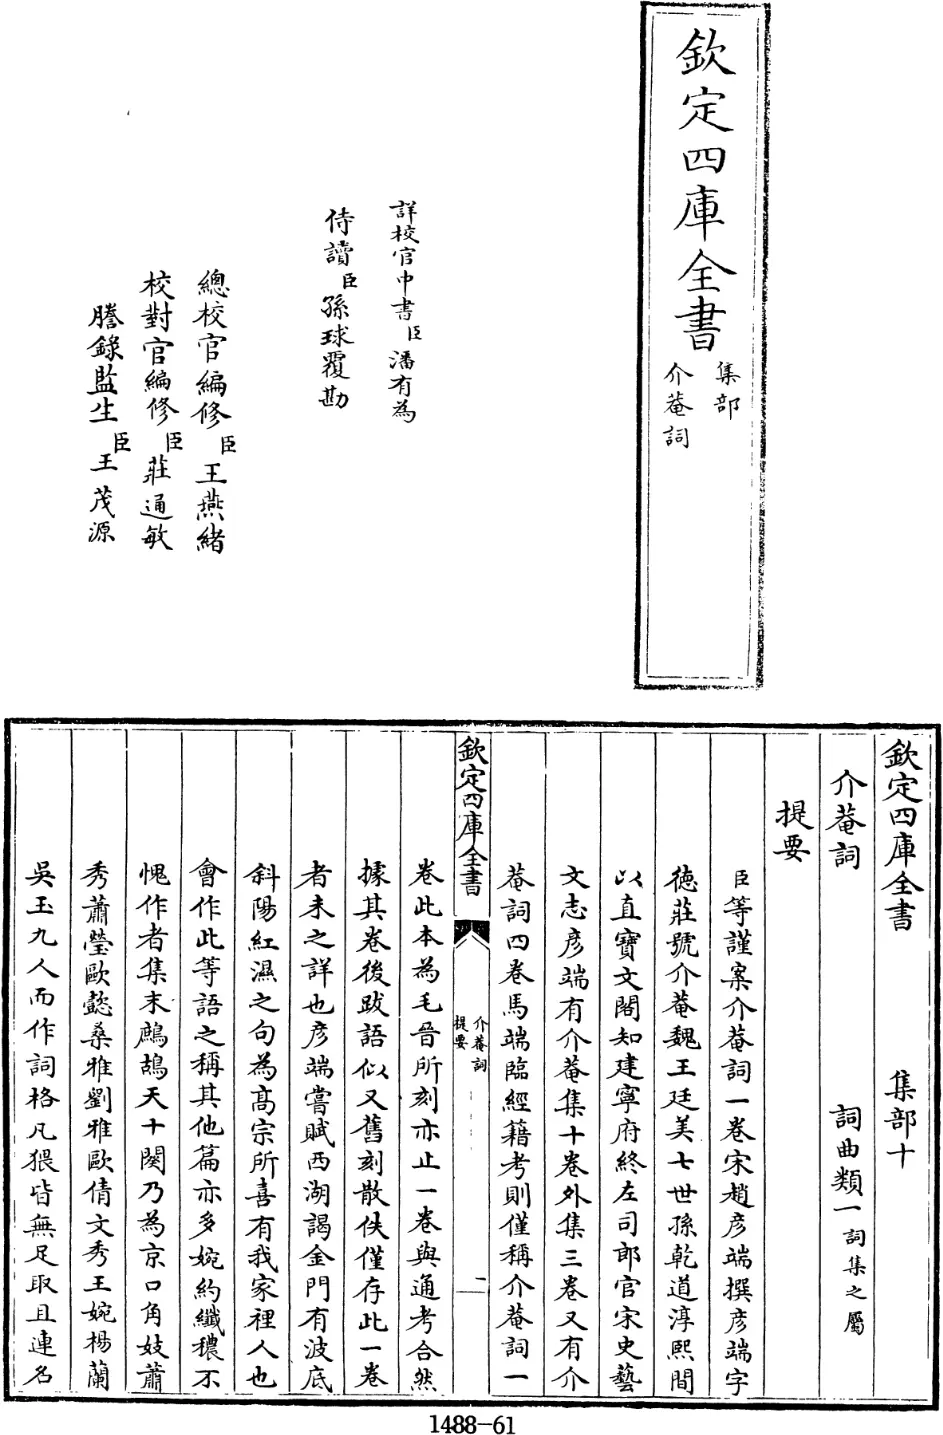 欽定四庫全書
集部
介菴詞
詳校官中書臣潘有為
侍讀臣孫球覆勘
總校官編修臣王燕緒
校對官編修臣莊通敏
謄錄監生臣王茂源
欽定四庫全書 集部十
介菴詞 詞曲類一詞集之屬
提要
臣等謹案介菴詞一卷宋趙彥端撰彥端字
德莊號介菴魏王廷美七世孫乾道淳熙間
以直寶文閣知建寧府終左司郎官宋史藝
文志彥端有介菴集十卷外集三卷又有介
菴詞四卷馬端臨經籍考則僅稱介菴詞一
欽定四庫全書
介菴詞
提要
一
卷此本為毛晉所刻亦止一卷與通考合然
據其卷後跋語似又舊刻散佚僅存此一卷
者未之詳也彥端嘗賦西湖謁金門有波底
斜陽紅濕之句為高宗所喜有我家裡人也
會作此等語之稱其他篇亦多婉約纖穠不
愧作者集末鷓鴣天十闋乃為京口角妓蕭
秀蕭瑩歐懿桑雅劉雅歐倩文秀王婉楊蘭
吳玉九人而作詞格凡猥皆無足取且連名
1488-61